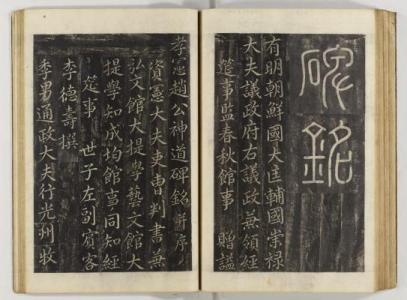 碑銘
有明朝鮮國大匡輔國崇祿
大夫議政府右議政兼領經
筵事監春秋館事 贈謚
孝憲趙公神道碑銘 并序
資憲大夫吏曹判書兼
弘文館大提學藝文館大
提學知成均館事同知經
筵事 世子左副賓客
李德壽撰
季男通政大夫行光州牧